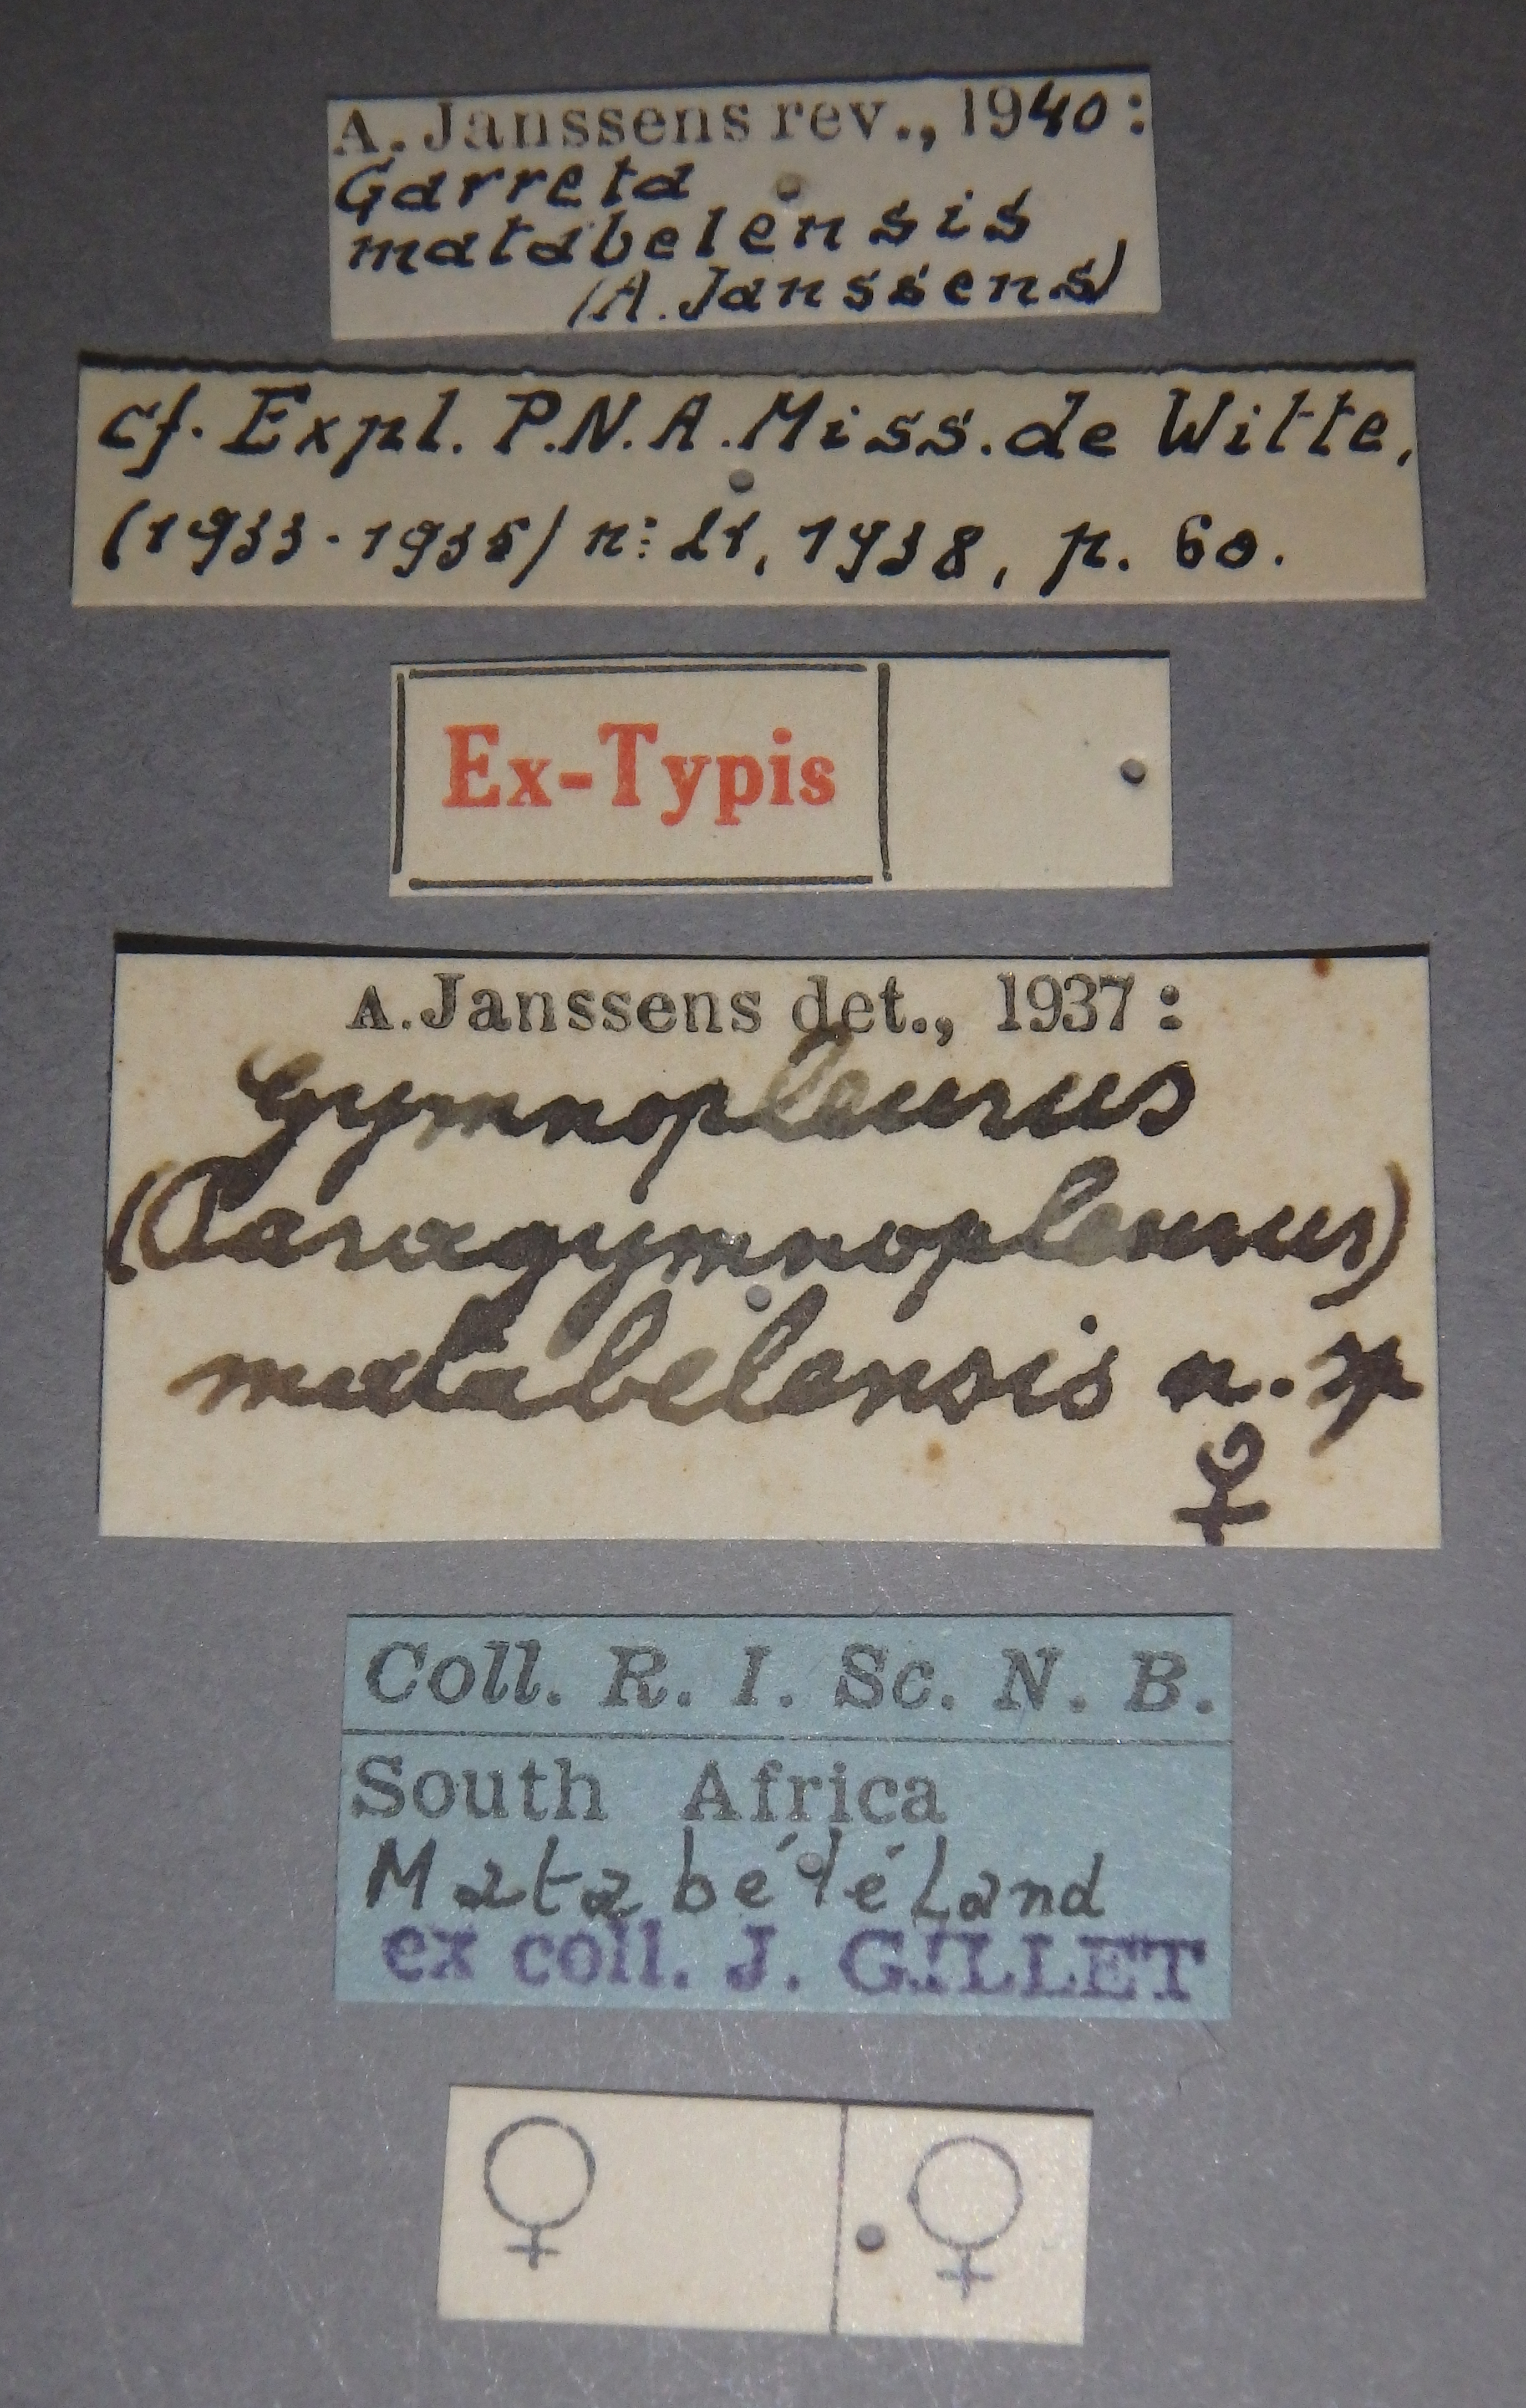 A. Janssens rev., 1940:
Garreta
matabelensis
(A. Janssens)
cf. Expl. P.N.A. Miss. de Witte,
(1933-1935) n: 21, 1938, p. 60.
Ex-Typis
A. Janssens det., 1937:
Gymnopleurus
(Paragymnopleurus)
matabelensis n. sp
♀
Coll. R. I. Sc. N. B.
South Africa
Matabéléland
ex coll. J. GILLET
♀ ♀